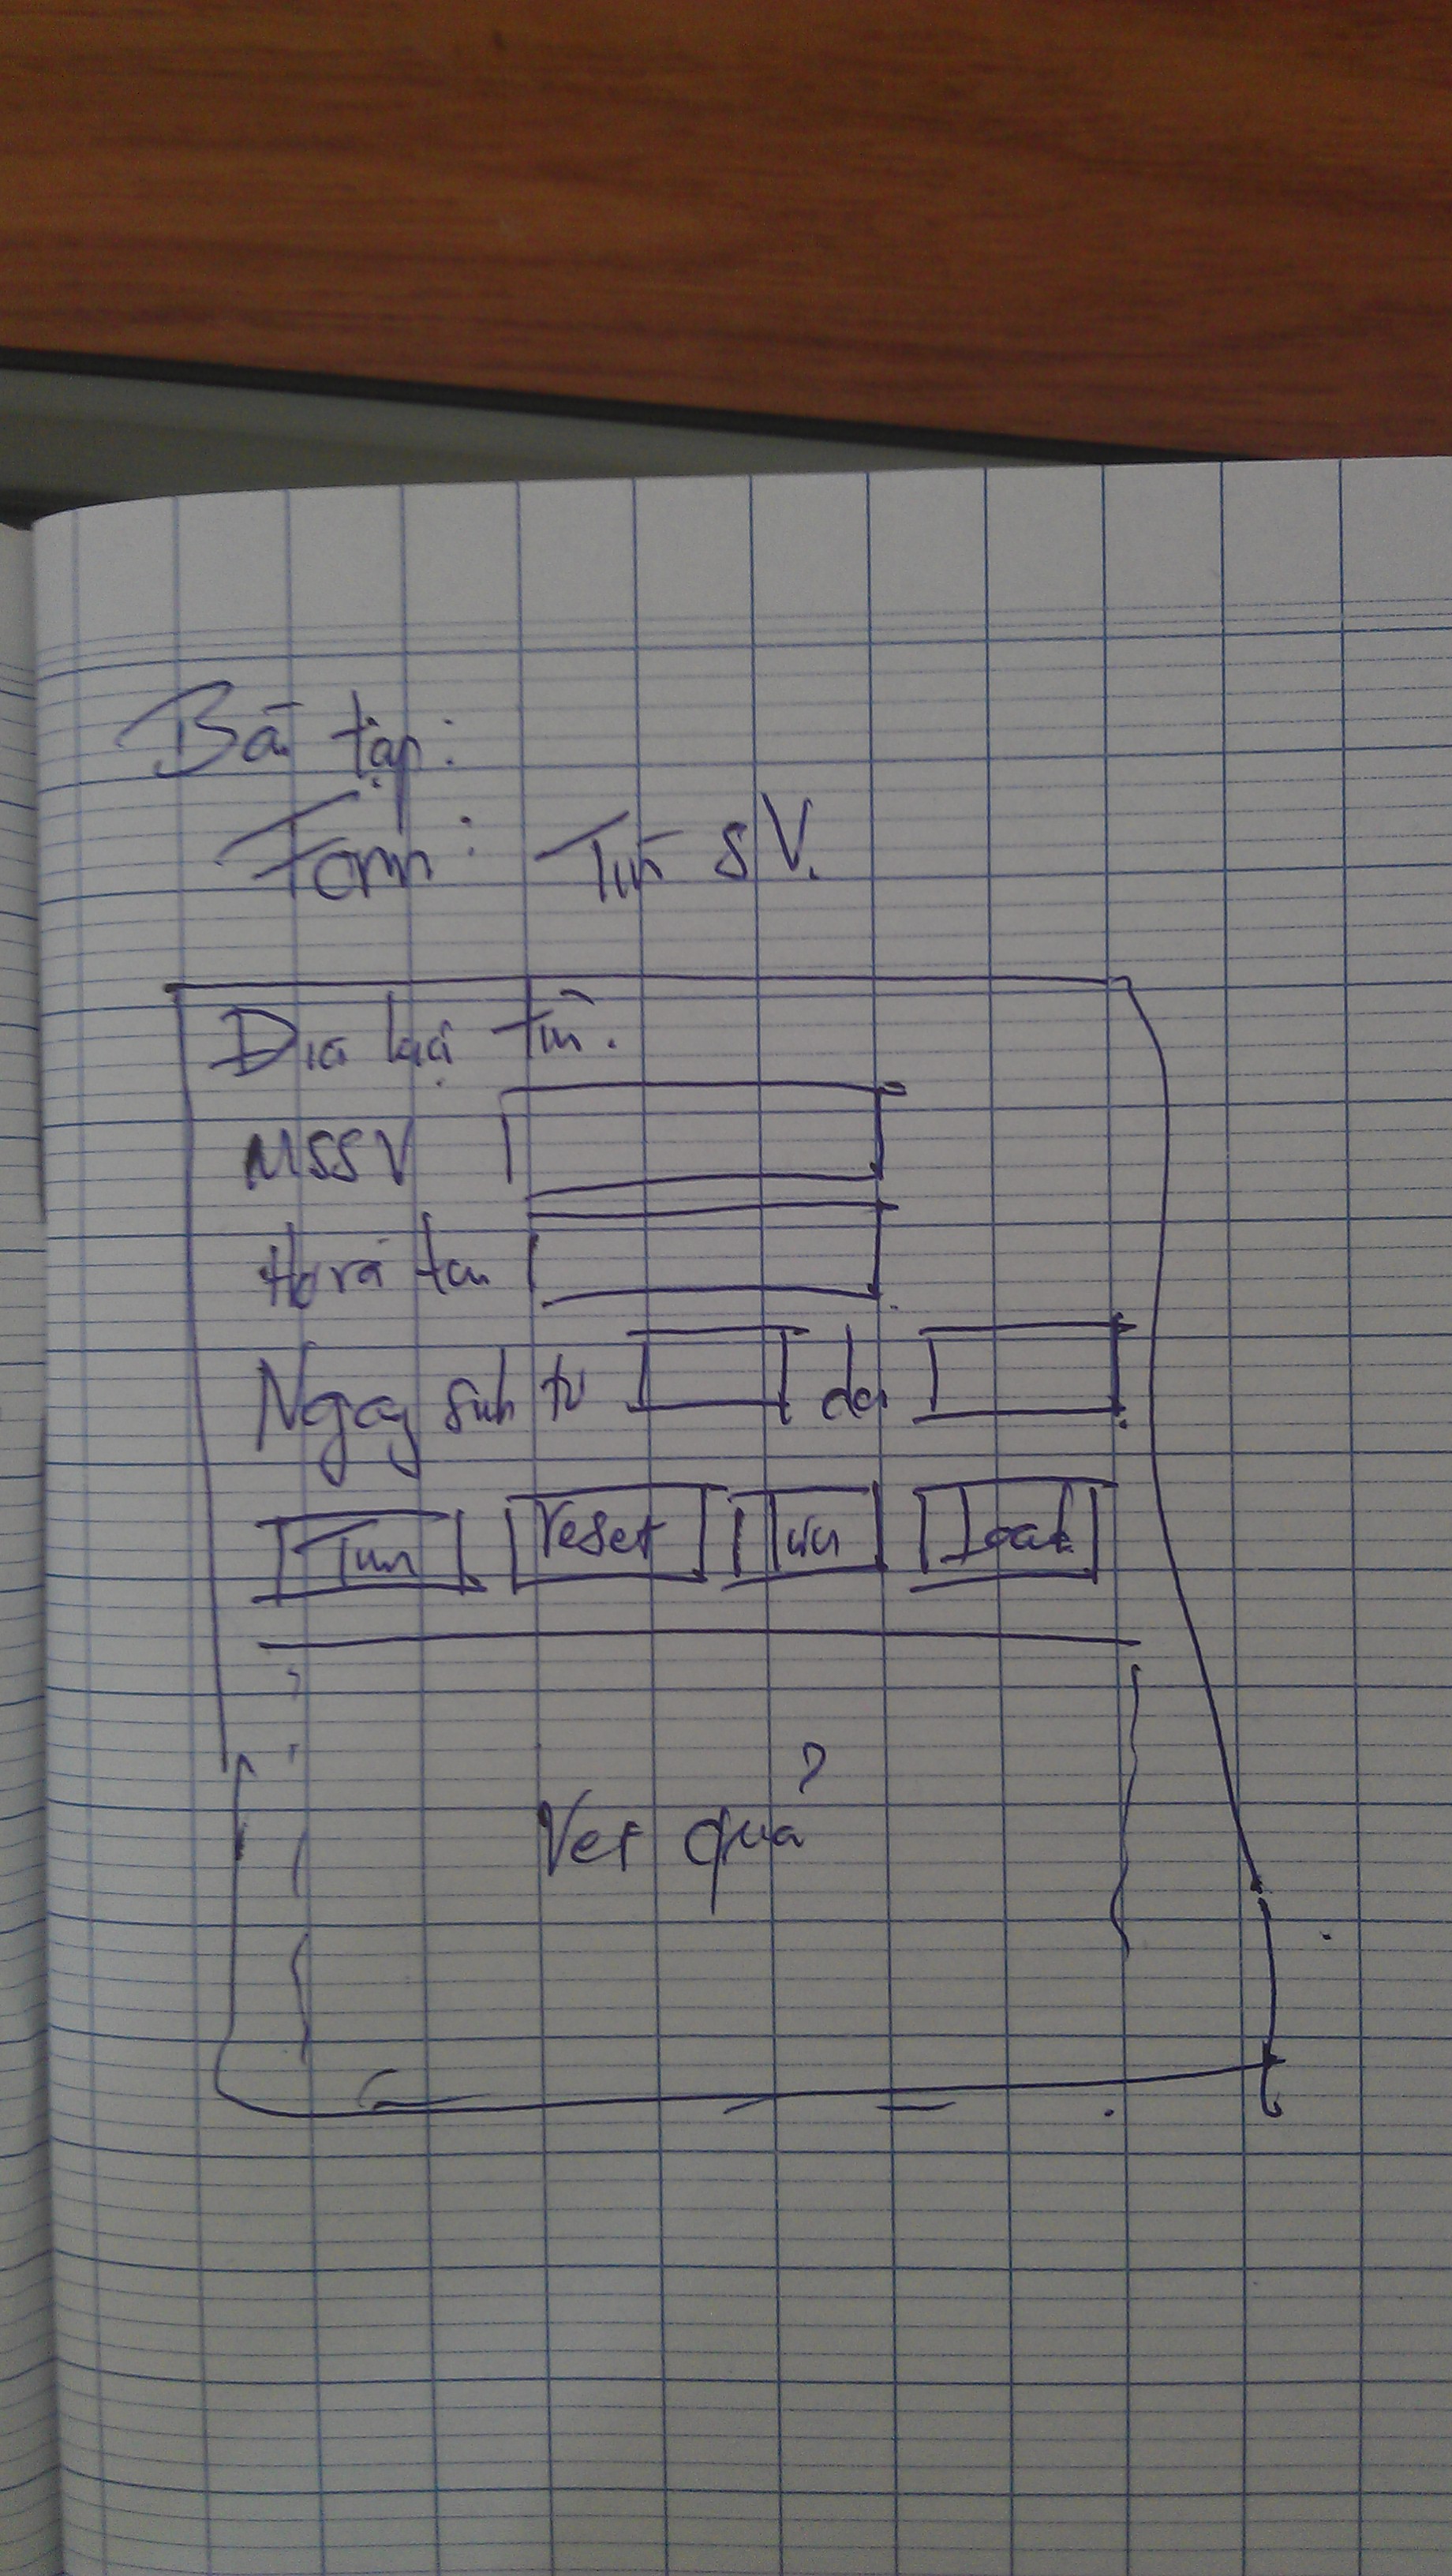 Bài tập:
Form: Tìm SV.
Điều kiện tìm.
MSSV
Họ và tên
Ngày sinh từ đến
Tìm reset
Kết quả